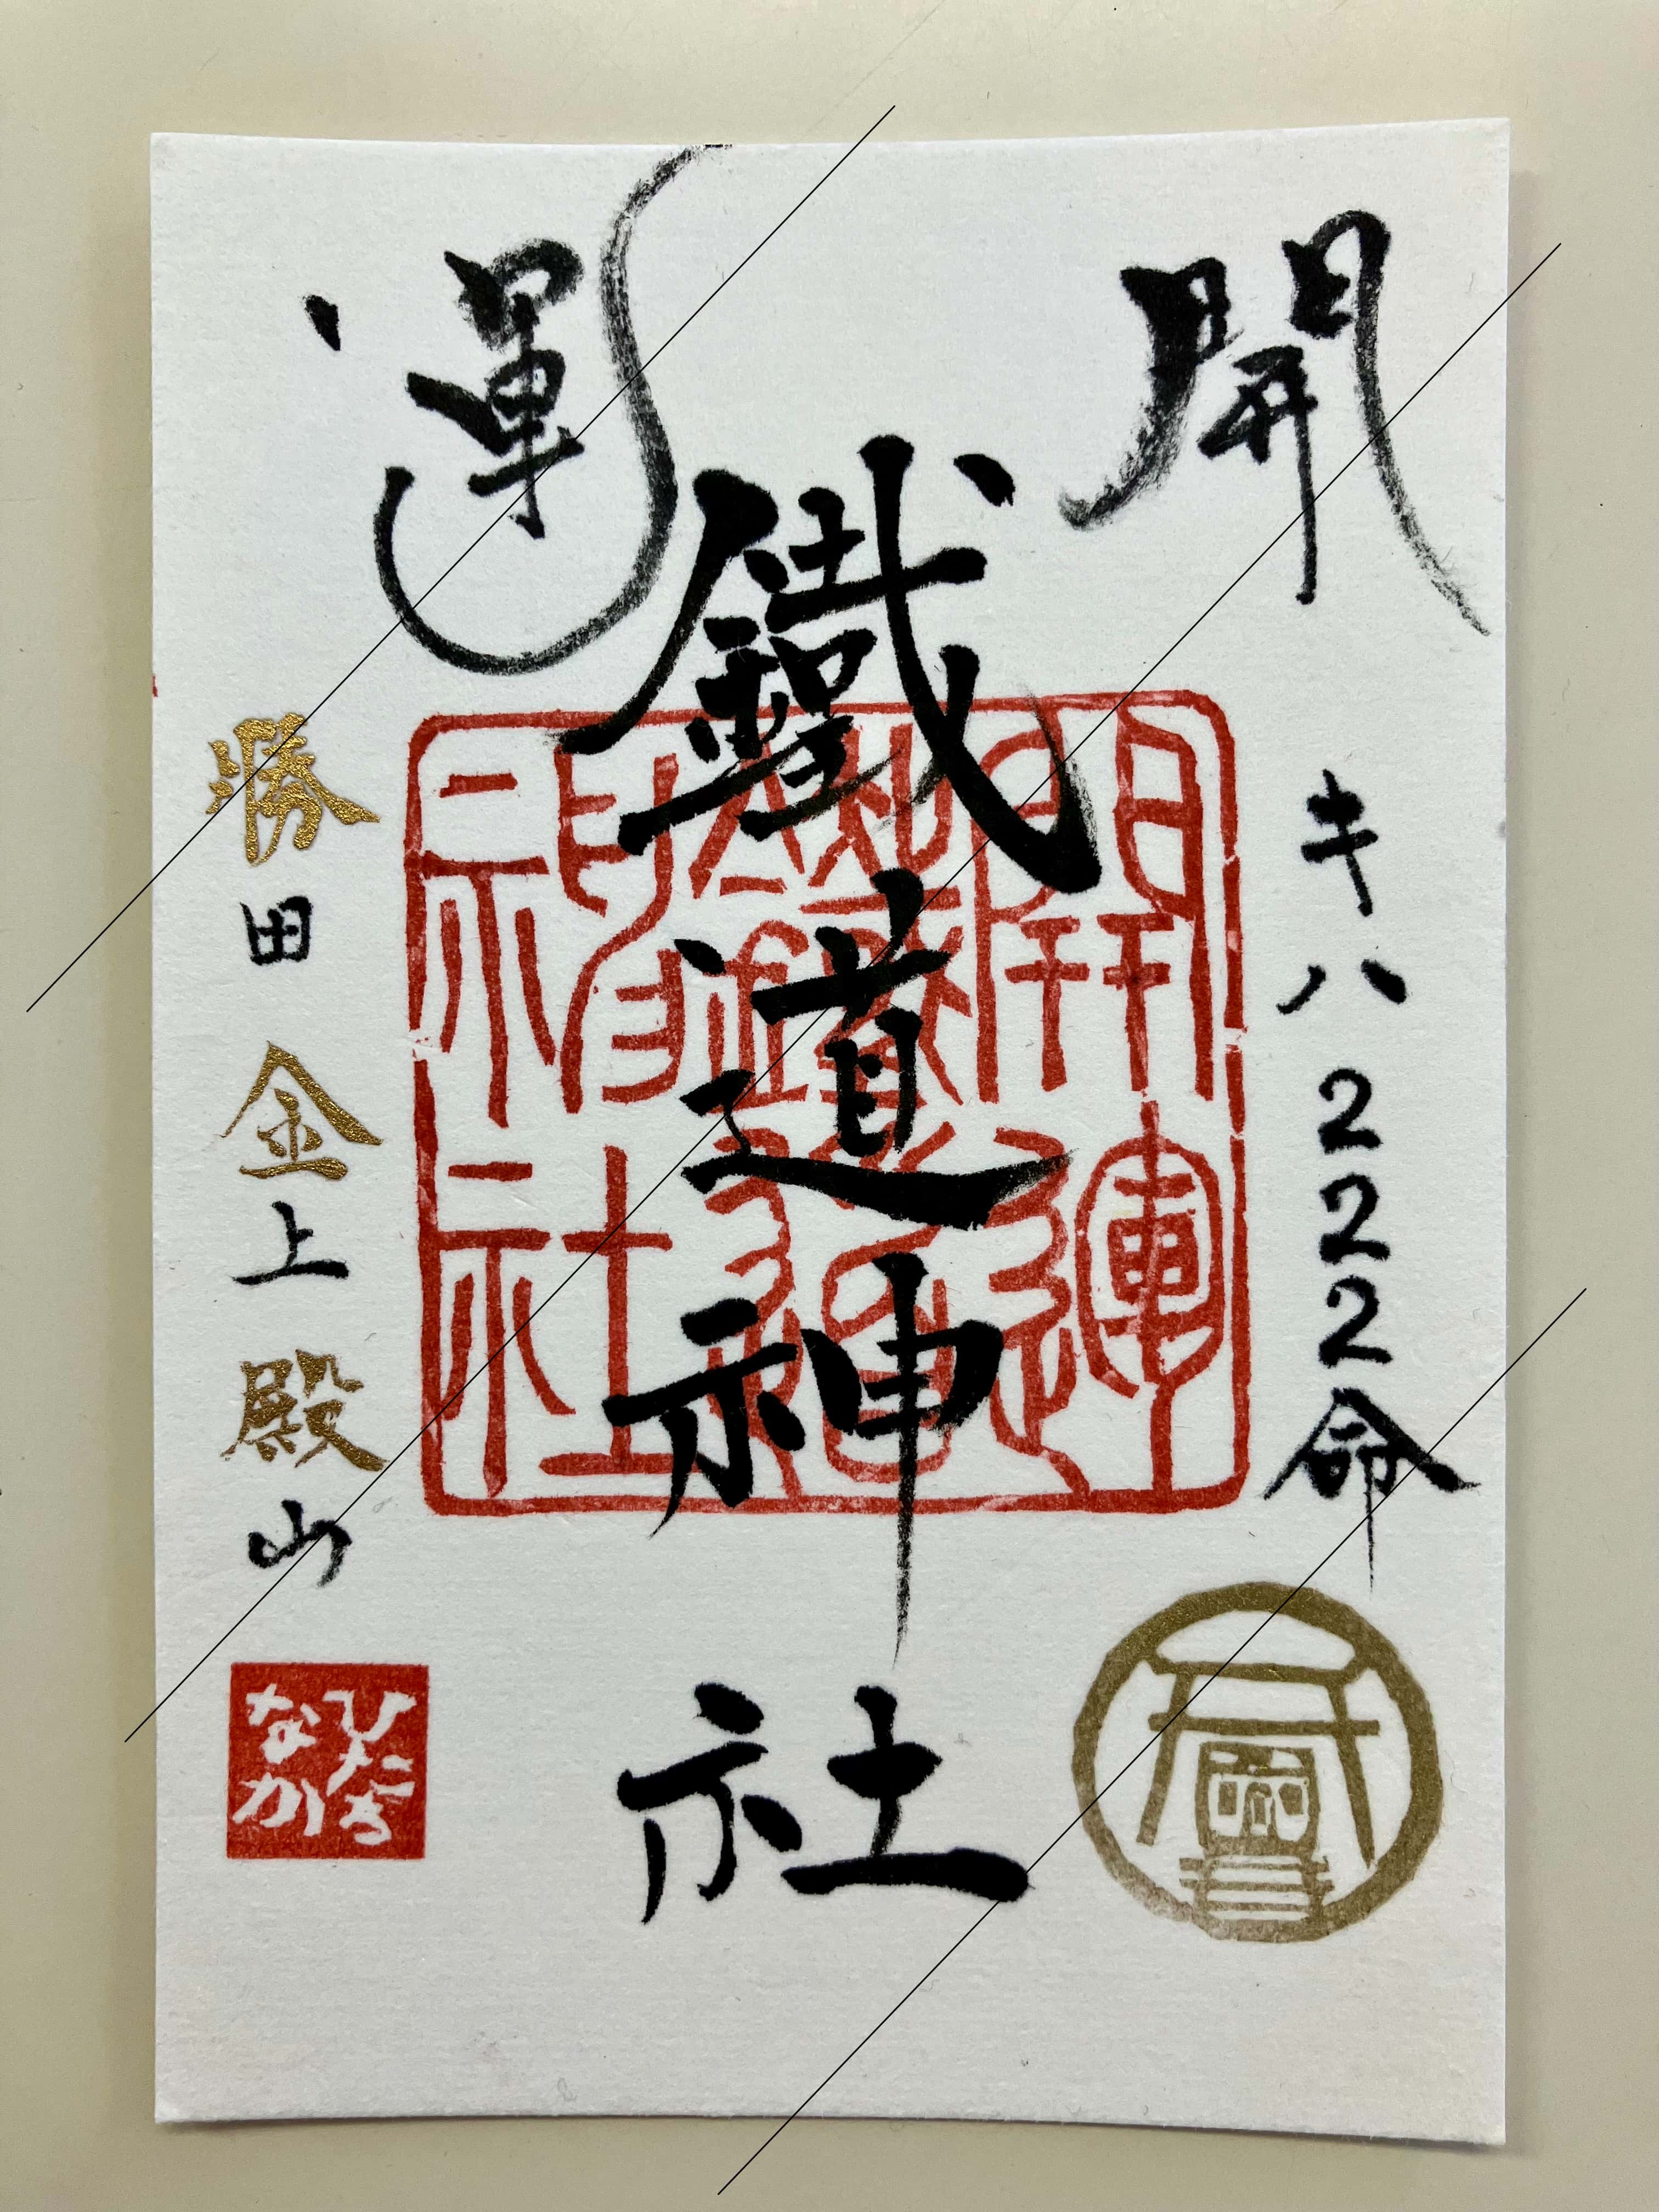 開運
鐵道神社
キハ222命
勝田金上殿山
開運鐵道神社
ひたちなか